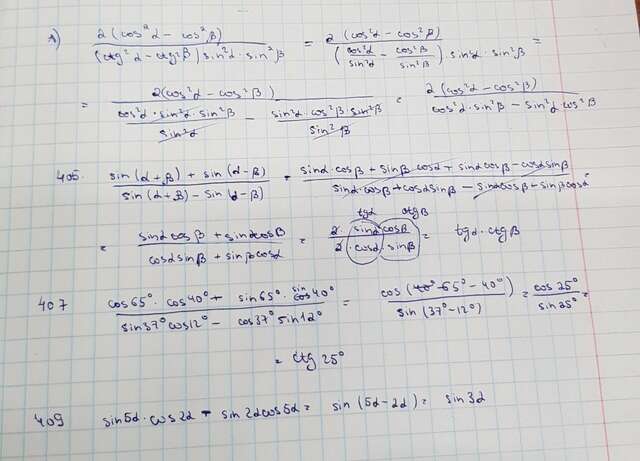 1) 2(cos²α − cos²β) / (ctg²α − ctg²β) sin²α · sin²β = 2(cos²α − cos²β) / (cos²α/sin²α − cos²β/sin²β) sin²α · sin²β =
= 2(cos²α − cos²β) / (cos²α · sin²α · sin²β / sin²α − sin²α cos²β · sin²β / sin²β) = 2(cos²α − cos²β) / cos²α · sin²β − sin²α cos²β
405 sin(α+β) + sin(α−β) / sin(α+β) − sin(α−β) = sinα · cosβ + sinβ cosα + sinα cosβ − cosα sinβ / sinα · cosβ + cosα sinβ − sinα cosβ + sinβ cosα
tgα ctgβ
= sinα cosβ + sinα cosβ / cosα sinβ + sinβ cosα = 2 · sinα cosβ / 2 · cosα · sinβ = tgα · ctgβ
407 cos65° · cos40° + sin65° · sin40° / sin37° cos12° − cos37° sin12° = cos(65° − 40°) / sin(37° − 12°) = cos25° / sin25° =
= ctg 25°
409 sin5α · cos2α − sin2α cos5α = sin(5α − 2α) = sin3α